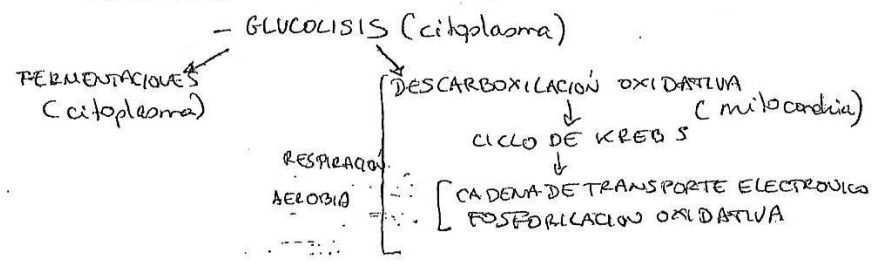 - GLUCOLISIS (citoplasma)
FERMENTACIONES
(citoplasma)
DESCARBOXILACIÓN OXIDATIVA
(mitocondria)
CICLO DE KREBS
RESPIRACIÓN
AEROBIA
CADENA DE TRANSPORTE ELECTRONICO
FOSFORILACION OXIDATIVA